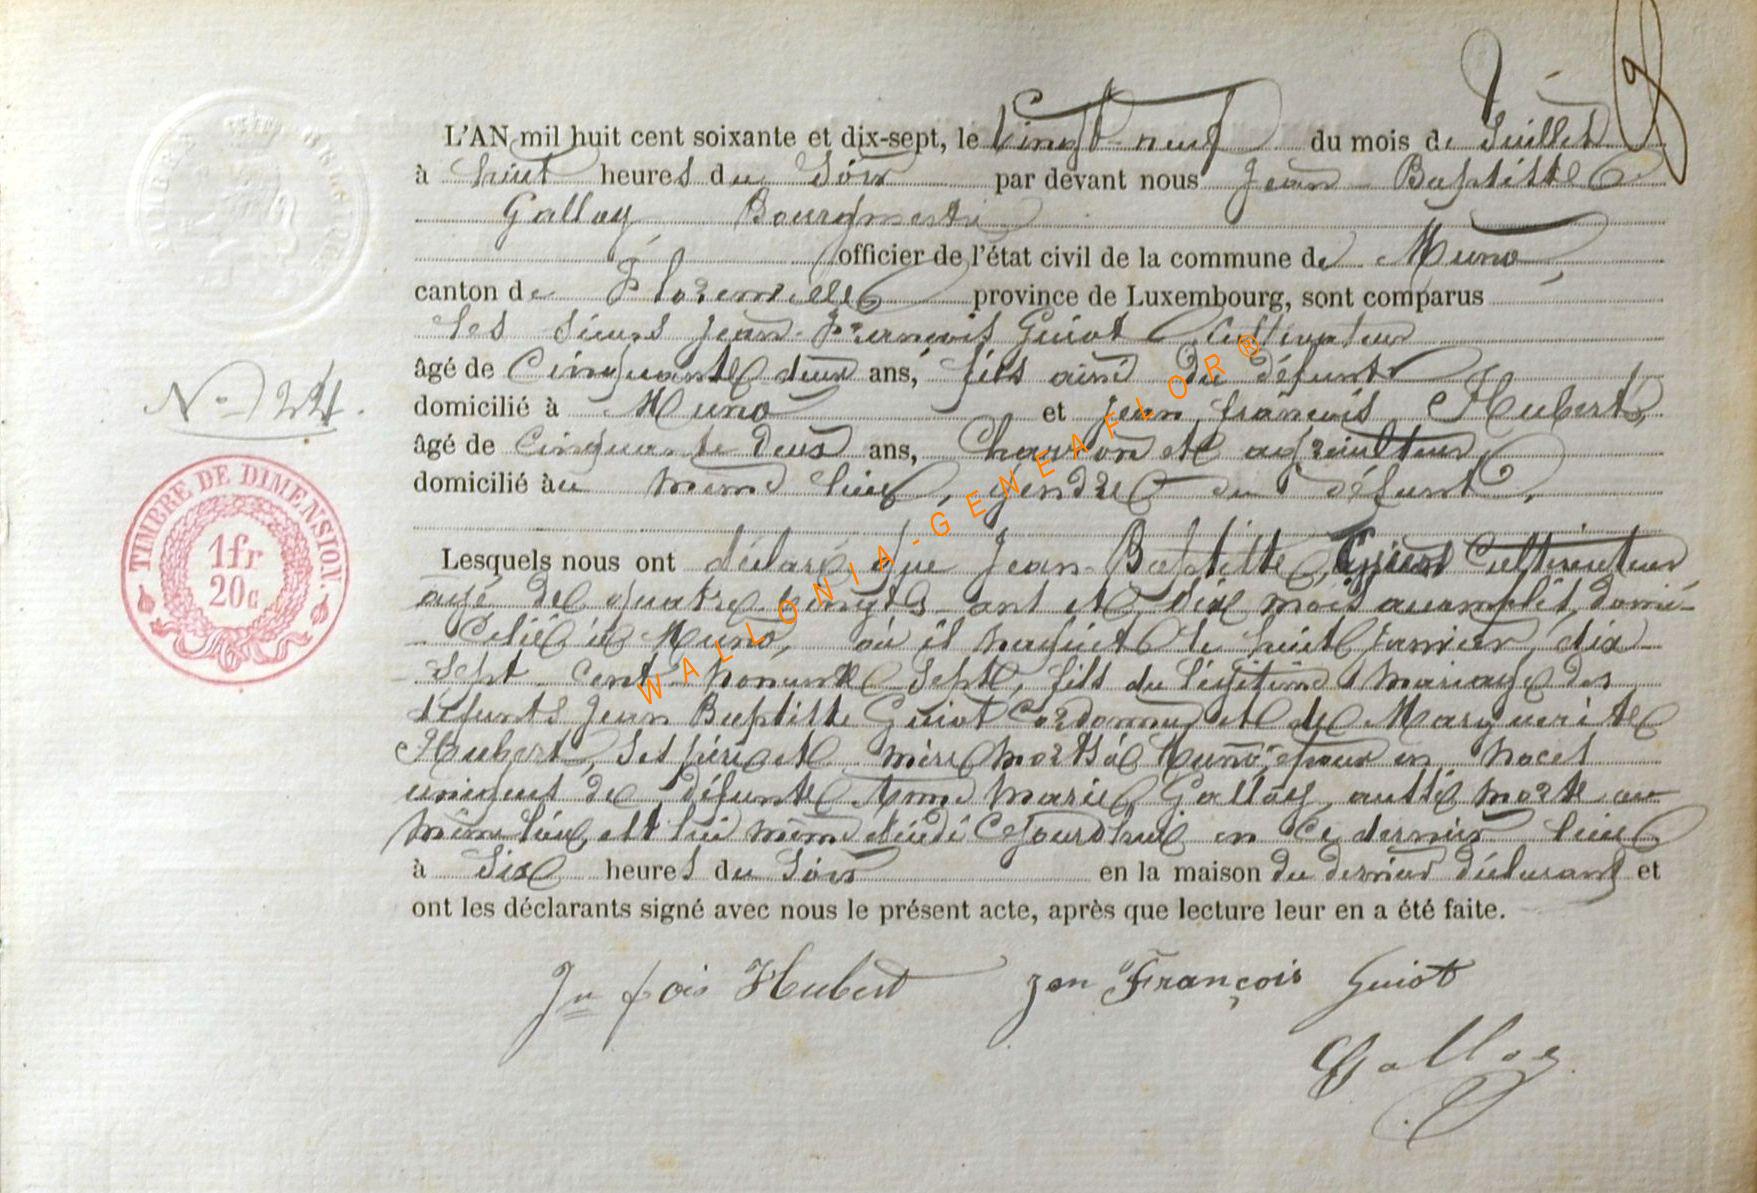 9
L'AN mil huit cent soixante et dix-sept, le Vingt-neuf du mois de Juillet
à huit heures du Soir par devant nous Jean Baptiste
Gallay Bourgmestre
officier de l'état civil de la commune de Muno,
canton de Florenville province de Luxembourg, sont comparus
les sieurs Jean-François Guiot Cultivateur
âgé de Cinquante deux ans, fils ainé du défunt
domicilié à Muno et Jean françois Hubert,
âgé de Cinquante Deux ans, Charron et agriculteur,
domicilié au même lieu, gendre du défunt,
Lesquels nous ont déclaré que Jean-Baptiste Guiot Cultivateur
agé de quatre-vingts ans et six mois accomplis, domi-
cilié à Muno, où il naquit le huit Janvier dix
Sept Cent nonante Sept, fils du légitime mariage des
défunts Jean Baptiste Guiot Cordonnier et de Marguerite
Hubert, Ses père et mère morts à Muno, époux en noces
uniques de défunte Anne Marie Gallay, aussi morte au
même lieu, est lui même décédé Cejourd'hui en Ce dernier lieu
à Six heures du Soir en la maison du dernier déclarant et
ont les déclarants signé avec nous le présent acte, après que lecture leur en a été faite.
Jn fois Hubert Jen François Guiot
Gallay
N° 24.
TIMBRE DE DIMENSION.
1fr
20c
WALLONIA-GENEAFLOR®